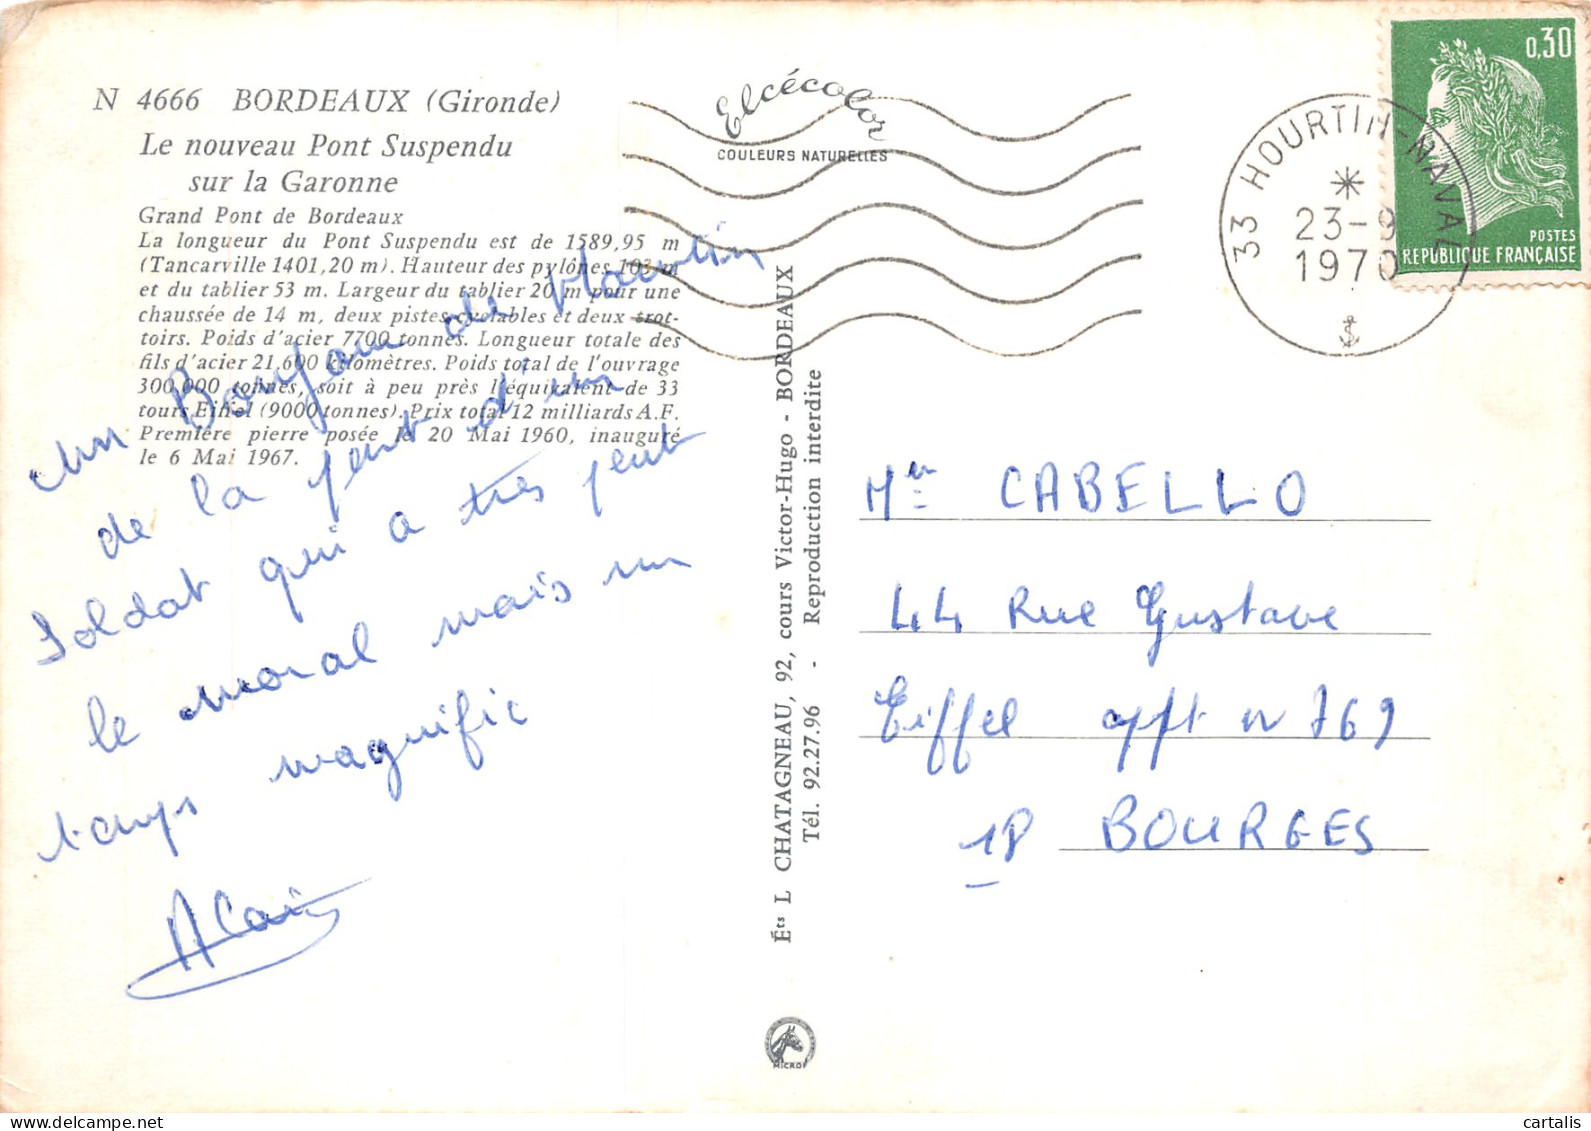 N 4666 BORDEAUX (Gironde)
Le nouveau Pont Suspendu
sur la Garonne
Grand Pont de Bordeaux
La longueur du Pont Suspendu est de 1589,95 m
(Tancarville 1401,20 m). Hauteur des pylônes 103 m
et du tablier 53 m. Largeur du tablier 20 m pour une
chaussée de 14 m, deux pistes cyclables et deux trot-
toirs. Poids d'acier 7700 tonnes. Longueur totale des
fils d'acier 21,600 kilomètres. Poids total de l'ouvrage
300,000 tonnes, soit à peu près l'équivalent de 33
tours Eiffel (9000 tonnes). Prix total 12 milliards A.F.
Première pierre posée le 20 Mai 1960, inauguré
le 6 Mai 1967.
un Bonjour de Hourtin
de la part d'un
Soldat qui a très peut
le moral mais un
temps magnific
Alain
Elcécolor
COULEURS NATURELLES
Éts L CHATAGNEAU, 92, cours Victor-Hugo - BORDEAUX
Tél. 92.27.96 - Reproduction interdite
MICRO
33 HOURTIN-NAVAL
23-9
1970
0,30
POSTES
REPUBLIQUE FRANÇAISE
Mr CABELLO
44 Rue Gustave
Eiffel appt n 769
18 BOURGES
cartalis